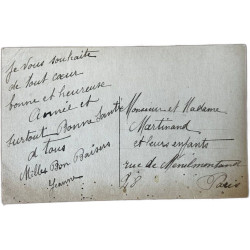 Je vous souhaite
de tout cœur
bonne et heureuse
Année et
surtout Bonne Santé
à tous
Milles Bon Baisers
Monsieur et Madame
Martinand
et leurs enfants
rue de Ménilmontant
48
Paris